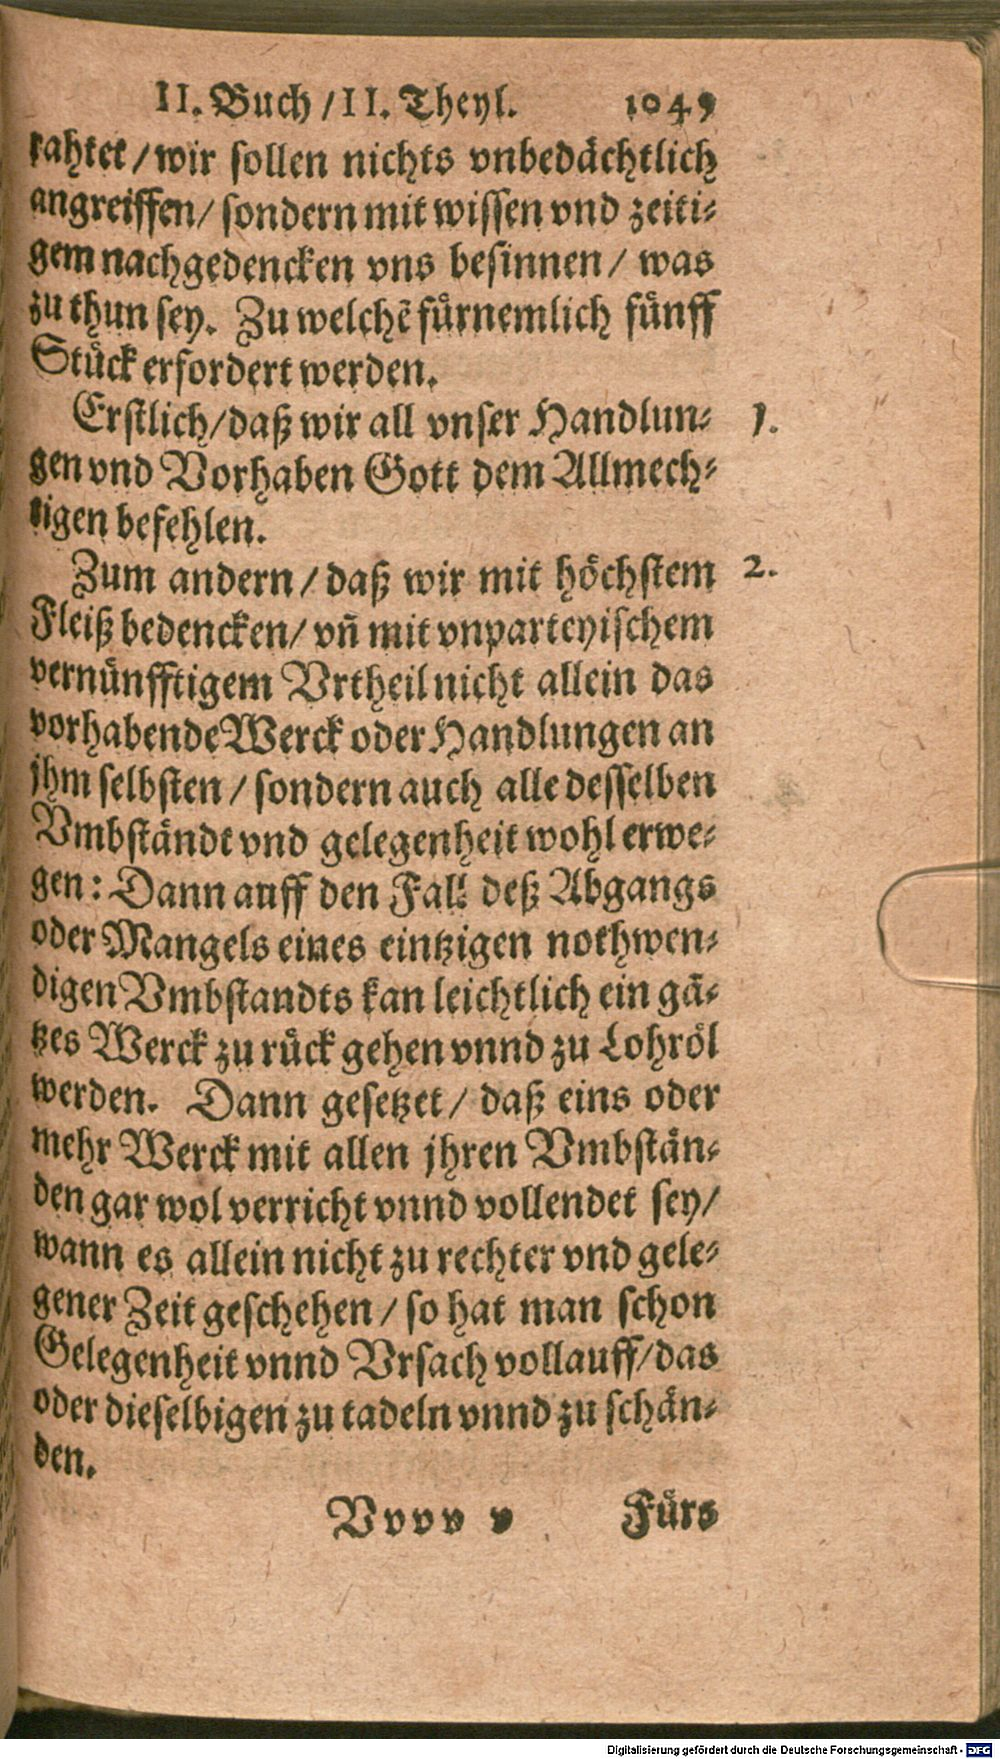 II. Buch / II. Theyl. 1049
rahtet / wir sollen nichts vnbedächtlich
angreiffen / sondern mit wissen vnd zeiti⸗
gem nachgedencken vns besinnen / was
zu thun sey. Zu welchẽ fürnemlich fünff
Stück erfordert werden.
Erstlich / daß wir all vnser Handlun⸗ 1.
gen vnd Vorhaben Gott dem Allmech⸗
tigen befehlen.
Zum andern / daß wir mit höchstem 2.
Fleiß bedencken / vñ mit vnparteyischem
vernünfftigem Vrtheil nicht allein das
vorhabende Werck oder Handlungen an
jhm selbsten / sondern auch alle desselben
Vmbständt vnd gelegenheit wohl erwe⸗
gen: Dann auff den Fall deß Abgangs
oder Mangels eines eintzigen nothwen⸗
digen Vmbstandts kan leichtlich ein gã⸗
tzes Werck zu rück gehen vnnd zu Lohröl
werden. Dann gesetzet / daß eins oder
mehr Werck mit allen jhren Vmbstän⸗
den gar wol verricht vnnd vollendet sey /
wann es allein nicht zu rechter vnd gele⸗
gener Zeit geschehen / so hat man schon
Gelegenheit vnnd Vrsach vollauff / das
oder dieselbigen zu tadeln vnnd zu schän⸗
den.
Vvvv v Fürs
Digitalisierung gefördert durch die Deutsche Forschungsgemeinschaft - DFG